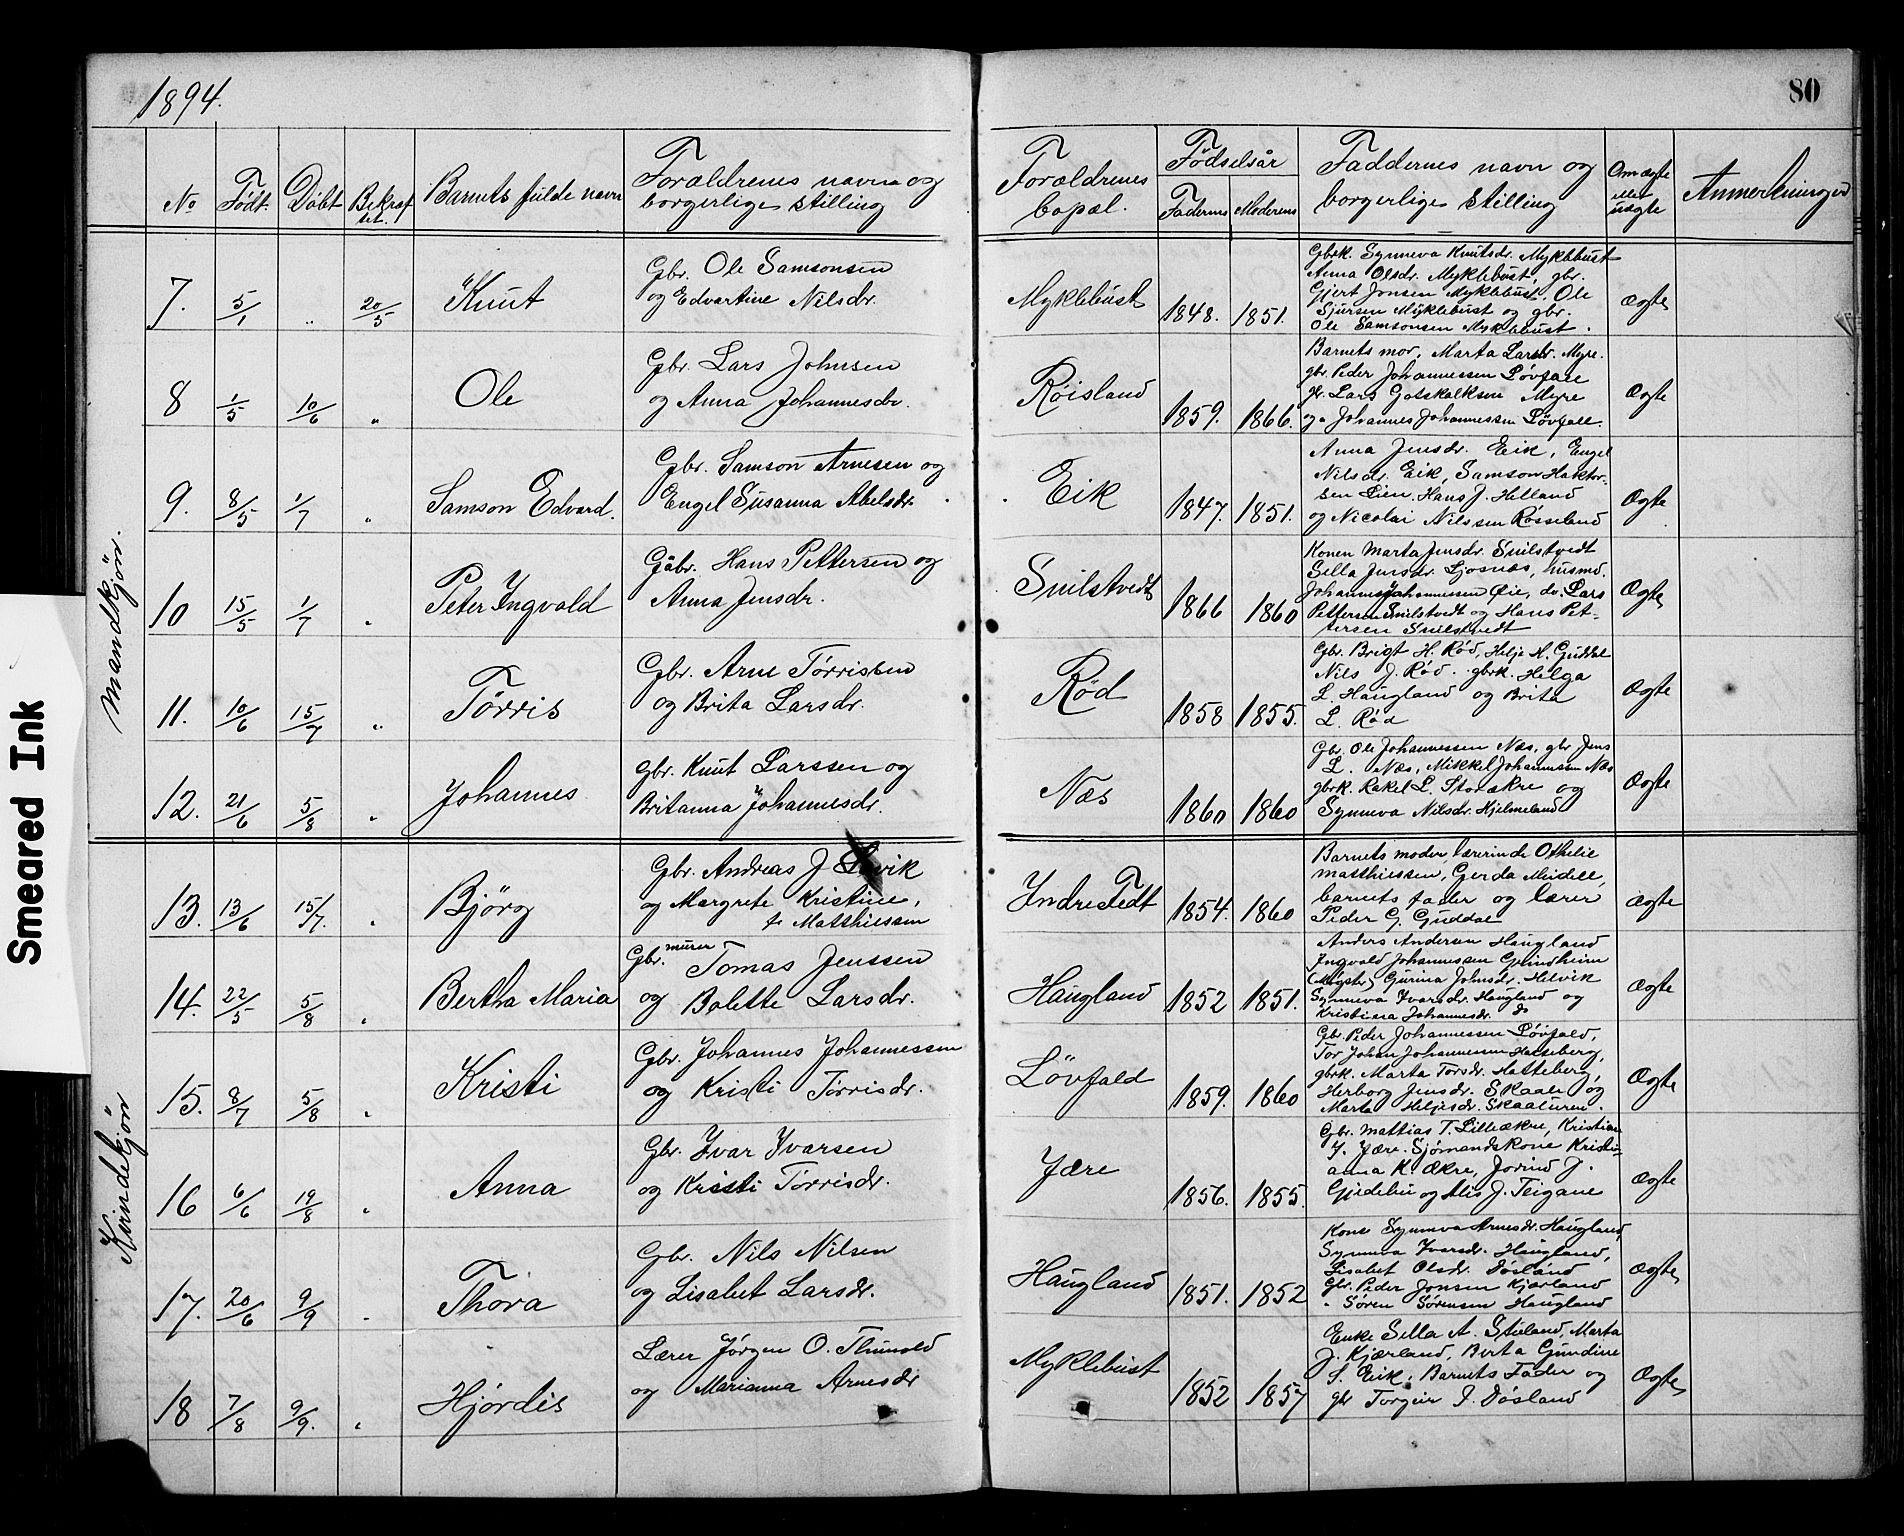 1894.
80
No
Født.
Døbt
Bekræf
tet.
Barnets fulde navn
Forældrenes navn og
borgerlige stilling
Forældrenes
bopæl.
Fødselsår
Faderens
Moderens
Faddernes navn og
borgerlige stilling
Om ægte
eller
uægte
Anmerkninger
Mandkjøn.
7. 5/1 " 20/5 Knut
Gbr. Ole Samsonsen
og Edvartine Nilsdr.
Myklebust 1848. 1851.
Gbrk. Synneva Knutsdr. Myklebust
Anna Olsdr. Myklebust, gbr.
Gjert Jonsen Myklebust, Ole
Sjursen Myklebust og gbr.
Ole Samsonsen Myklebust.
Ægte
8 1/5 10/6 " Ole
Gbr. Lars Johnsen
og Anna Johannesdr.
Røisland 1859. 1866.
Barnets mor, Marta Larsdr. Myre.
gbr. Peder Johannessen Løvfall
Lars Gotskalksen Myre
og Johannes Johannessen Løvfall.
Ægte
9. 8/5 1/7 " Samson Edvard.
Gbr. Samson Arnesen og
Engel Susanna Abelsdr.
Eik 1847. 1851.
Anna Jensdr. Eik, Engel
Nilsdr. Eik, Samson Haktor-
sen Lien, Hans J. Helland
og Nicolai Nilssen Røsseland
Ægte
10 15/5 1/7 " Peter Ingvald
Gåbr. Hans Pettersen og
Anna Jensdr.
Snilstvedt 1866 1860
Konen Marta Jensdr. Snilstvedt
Sella Jensdr. Ljosnæs, husmd.
Johannes Johannessen Øie, do. Lars
Pettersen Snilstvedt og Hans Pet-
tersen Snilstvedt
Ægte
11. 10/6 15/7 " Tørris
Gbr. Arne Tørrisen
og Brita Larsdr.
Rød 1858 1855.
Gbr. Brigt H. Rød, Helje H. Guddal
Nils J. Rød. gbrk. Helga
L Haugland og Brita
L. Rød
Ægte
12. 21/6 5/8 " Johannes
Gbr. Knut Larssen og
Britanna Johannesdr.
Næs 1860 1860
Gbr. Ole Johannessen Næs, gbr Jens
L. Næs, Mikkel Johannessen Næs
gbrk. Rakel L. Storækre og
Synneva Nilsdr. Hjelmeland
Ægte
Kvindekjøn
13. 13/6 15/7. " Bjørg
Gbr. Andreas J
og Margrete Kristine,
f. Matthiessen
Indre Tedt 1854. 1860
Barnets moder, lærerinde Othelie
Matthiessen, Gerda Meidell,
barnets fader og lærer
Peder G. Guddal
Ægte
14. 22/5 5/8 " Bertha Maria
Gbr. murer Tomas Jenssen
og Bolette Larsdr.
Haugland 1852 1851.
Anders Andersen Haugland
Ingvald Johannessen Grindheim
Gurina Johnsdr. Helvik
Synneva Ivarsdr. Haugland og
Kristina Johannesdr. do
Ægte
15. 8/7 5/8 " Kristi
Gbr. Johannes Johannessen
og Kristi Tørrisdr.
Løvfald 1859. 1860
Gbr. Peder Johannessen Løvfald,
Tor Johan Johannessen Hatteberg,
gbrk. Marta Torsdr. Hatteberg,
Herborg Jensdr. Skaale og
Marta Heljesdr. Skaaluren.
Ægte
16 6/6 19/8 " Anna
Gbr. Ivar Ivarsen
og Kristi Tørrisdr.
Jære 1856. 1855.
Gbr. Mattias T. Lilleækre, Kristian
J. Jære. Sjømandskone Kristi-
anna K. Ækre, Jorind J.
Gjedebu og Alis J. Teigane
Ægte
17. 20/6 9/9 " Thora
Gbr. Nils Nilsen
og Lisabet Larsdr.
Haugland 1851. 1852
Kone Synneva Arnesdr. Haugland,
Synneva Ivarsdr. Haugland,
Lisabet Olsdr. Døsland
Gbr. Peder Jonsen Kjærland
" Søren Sørensen Haugland
Ægte
18 7/8 9/9. " Hjørdis
Lærer Jørgen O. Thunold
og Marianna Arnesdr
Myklebust 1852 1857
Enke Sella A. Støland, Marta
J. Kjærland, Berta Gundine
S. Eik, Barnets Fader og
gbr Torgeir P. Døsland
Ægte
Smeared Ink